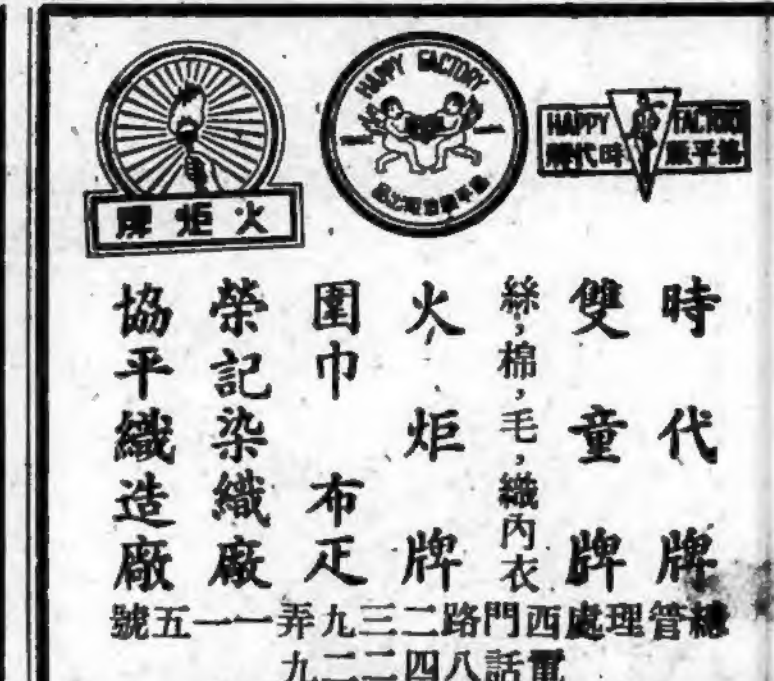 HAPPY FACTORY
協平廠 時代牌
HAPPY FACTORY
協平織造廠出品
火炬牌
時代牌
雙童牌
絲，棉，毛，織內衣
火炬牌
圍巾 布疋
榮記染織廠
協平織造廠
總管理處西門路二三九弄一一五號
電話八四二二九